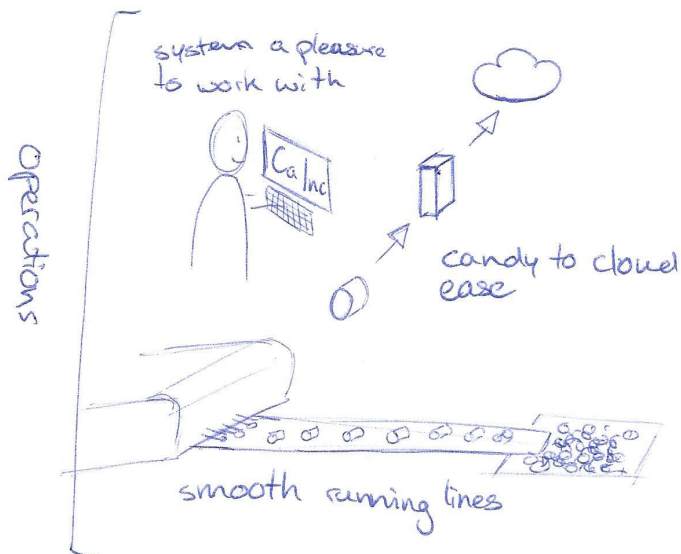 operations
system a pleasure
to work with
Ca Inc
candy to cloud
ease
smooth running lines